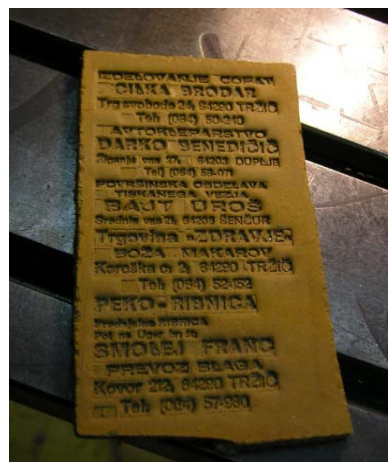 IZDELOVANJE COPAT
CILKA BRODAR
Trg svobode 24, 64290 TRŽIČ
Tel: (064) 50-240
AVTOKLEPARSTVO
DARKO BENEDIČIČ
Žiganja vas 27, 64203 DUPLJE
Tel: (064)
POVRŠINSKA OBDELAVA
TISKANEGA VEZJA
BAJT UROŠ
Srednja vas 21, 64208 ŠENČUR
Trgovina »ZDRAVJE«
BOŽA MAKAROV
Koroška c. 2, 64290 TRŽIČ
Tel: (064) 52-152
PEKO-RIBNICA
RIBNICA
Pot na Ugar
SMOLEJ FRANC
PREVOZ BLAGA
Kovor 212, 64290 TRŽIČ
Tel: (064) 57-960